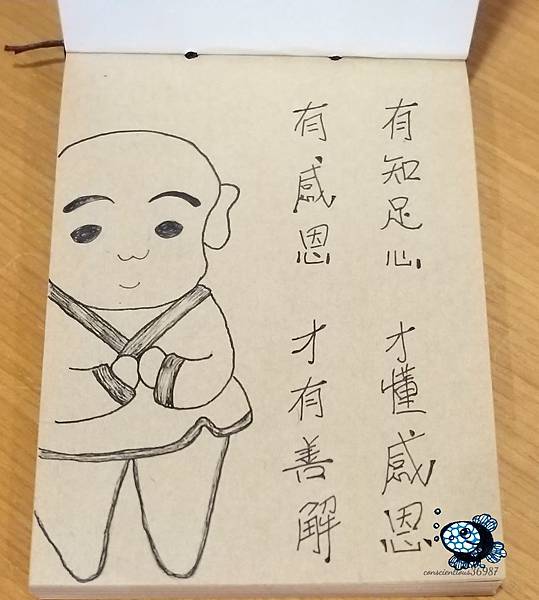 有知足心 才懂感恩
有感恩 才有善解
conscientious36987